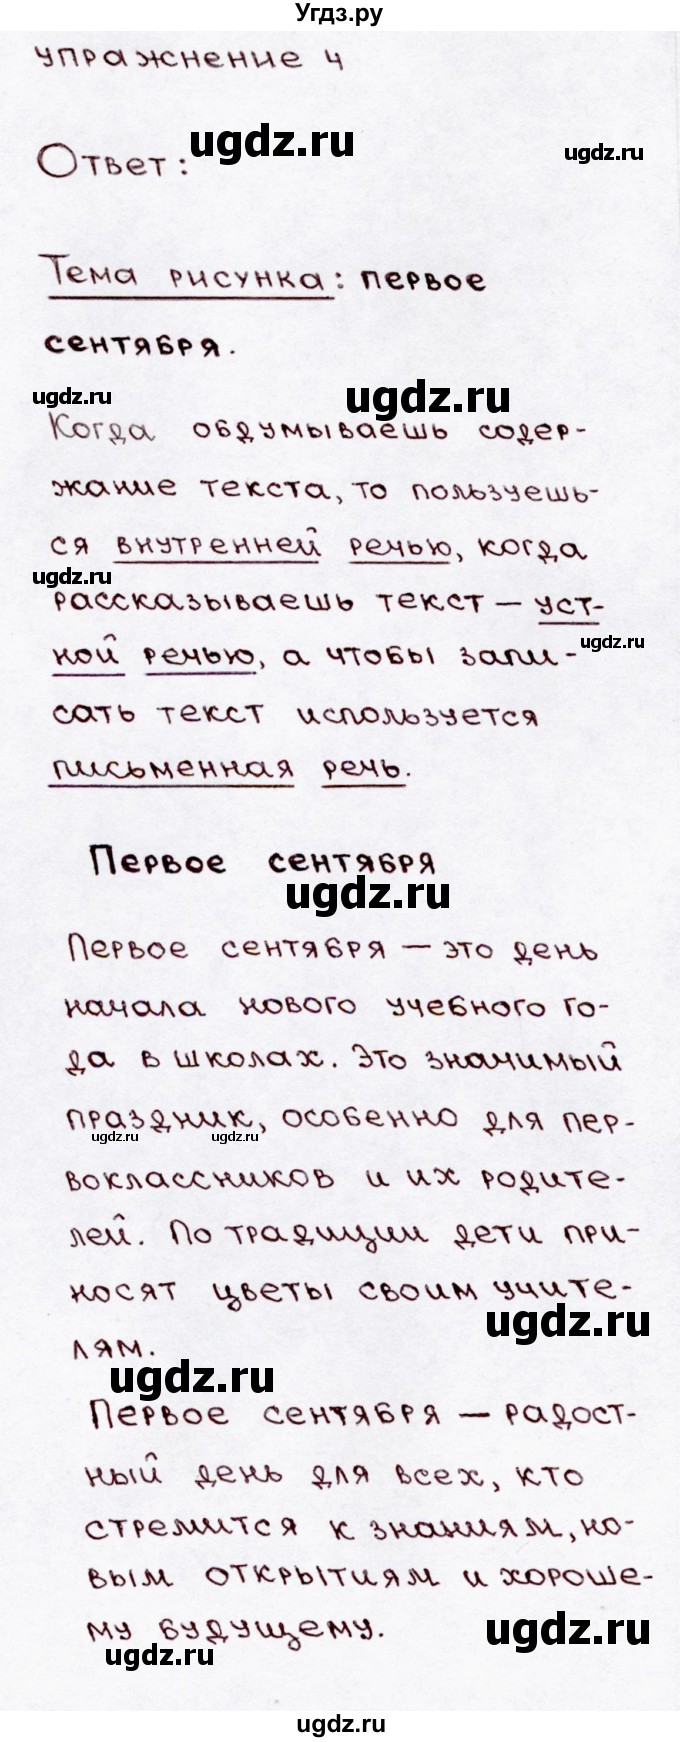 Угдз.ру
упражнение 4
ugdz.ru
ugdz.ru
Ответ:
Тема рисунка: первое
сентября.
ugdz.ru
ugdz.ru
Когда обдумываешь содер-
жание текста, то пользуешь-
ся внутренней речью, когда
ugdz.ru
рассказываешь текст – уст-
ugdz.ru
ной речью, а чтобы запи-
сать текст используется
письменная речь.
Первое сентября
ugdz.ru
Первое сентября – это день
начала нового учебного го-
да в школах. Это значимый
праздник, особенно для пер-
ugdz.ru ugdz.ru
воклассников и их родите-
лей. По традиции дети при-
носят цветы своим учите-
ugdz.ru
лям.
ugdz.ru
Первое сентября – радост-
ный день для всех, кто
стремится к знаниям, но-
вым открытиям и хороше-
му будущему.
ugdz.ru
ugdz.ru
ugdz.ru